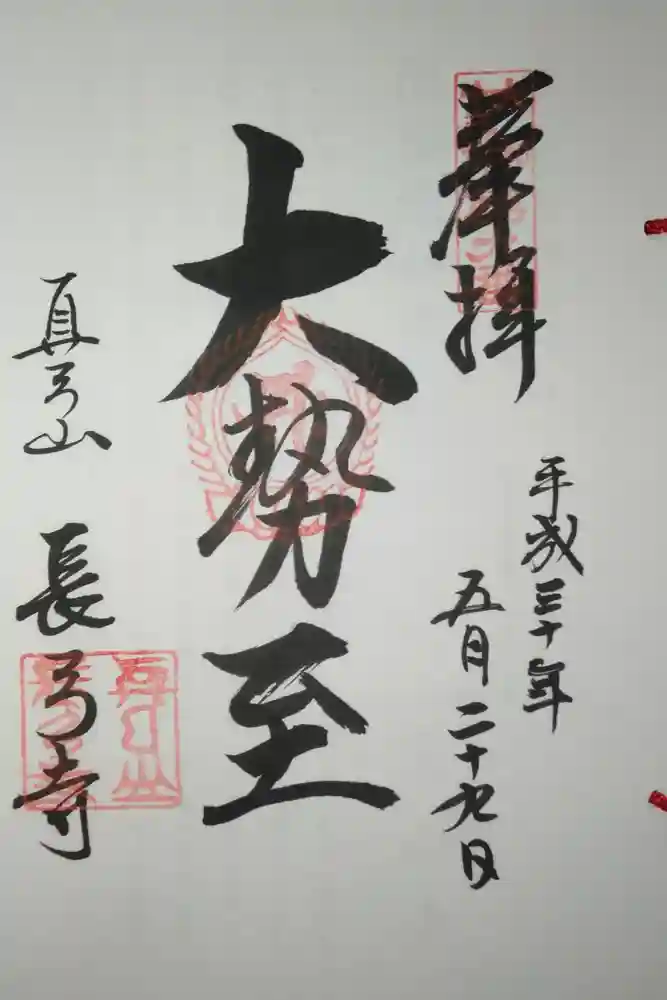 奉拝
平成三十年
五月二十九日
大勢至
真弓山 長弓寺